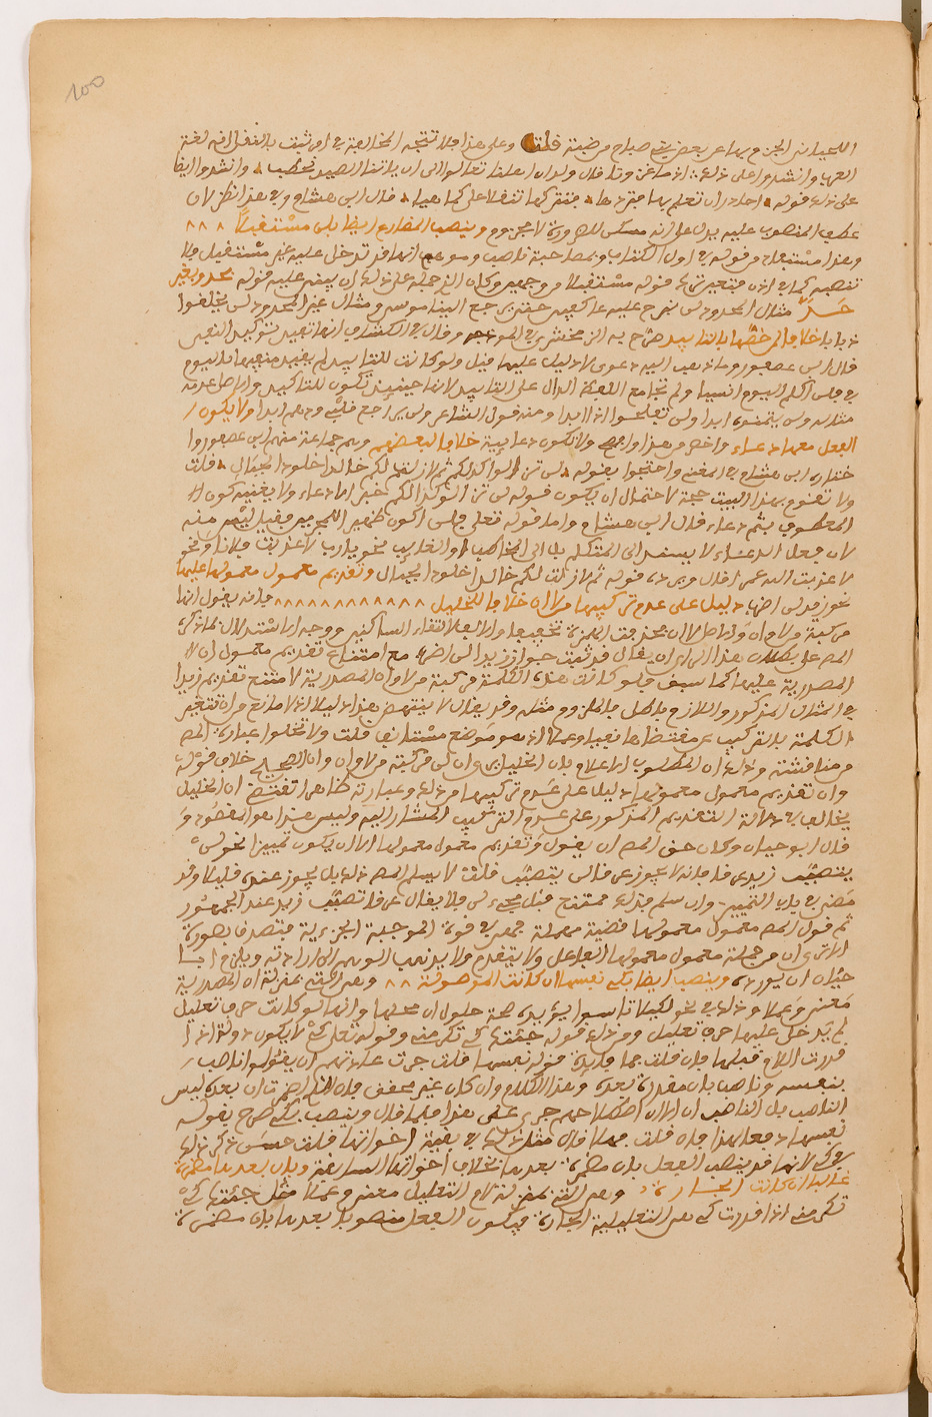 100
اللحياني الجزم بها عن بعض بني صباح من ضبة قلت وعلى هذا فلا تتجه المخالفة في امر ثبت بالنقل انه لغة
العرب وانشدوا على ذلك اذا ما غدونا قال ولدان اهلنا تعالوا الى ان ياتنا الصيد نحطب وانشدوا ايضا
على ذلك قوله احاذر ان تعلم بها فتردها فتتركها ثقلا علي كما هيا قال ابن هشام وفي هذا نظر لان
عطف المنصوب عليه يدل على انه مسكن للضرورة لا مجزوم وينصب المضارع ايضا بلن مستقبلا
وهذا مستفاد من قوله في اول الكتاب وبمصاحبة ناصب
تنصبه كما في اذن فتعين ان قوله مستقبلا
حد مثال المحدود لن نبرح عليه عاكفين حتى يرجع الينا موسى ومثال غير المحدود لن يخلقوا
ذبابا خلافا لمن خصها بالتابيد صرح به الزمخشري في وقال في الكشاف انها تفيد توكيد النفي
قال ابن عصفور وما ذهب اليه دعوى لا دليل عليها قيل ولو كانت للتابيد لم يقيد منفيها باليوم
في فلن اكلم اليوم انسيا ولم تجامع اللفظ الدال على التابيد لانها حينئذ تكون للتاكيد والاصل عدمه
مثاله ولن يتمنوه ابدا ولن تفلحوا اذا ابدا ومنه قول الشاعر ولن يراجع قلبي ودهم ابدا ولا يكون
الفعل معها دعاء ولا تكون دعائية خلافا لبعضهم وهم جماعة منهم ابن عصفور وا
ختاره ابن هشام في المغني واحتجوا بقوله لن تزالوا كذلكم ثم لا زلت لكم خالدا خلود الجبال قلت
ولا تقوم بهذا البيت حجة لاحتمال ان يكون قوله لن تزالوا كذلكم خبرا لا دعاء ولا يعينه كون
المعطوف بثم دعاء قال ابن هشام واما قوله تعلى فلن اكون ظهيرا للمجرمين فقيل ليس منه
لان فعل الدعاء لا يسند الى المتكلم بل الى المخاطب او الغايب نحو يا رب لا عذبت فلانا ونحو
لا عذب الله عمرا قال ويرده قوله ثم لا زلت لكم خالدا خلود الجبال وتقديم معمول معمولها عليها
نحو زيدا لن اضرب دليل على عدم تركيبها من لا ان خلافا للخليل فانه يقول انها
مركبة من لا وان والاصل لا ان فحذفت الهمزة تخفيفا والالف لالتقاء الساكنين ووجه الاستدلال بما ذكره
المص على بطلان هذا الراي ان يقال قد ثبت جواز زيدا لن اضرب مع امتناع تقديم معمول ان
المصدرية عليها كما سبق فلو كانت هذه الكلمة مركبة من لا وان المصدرية لامتنع تقديم زيدا
في المثال المذكور واللازم باطل فالملزوم مثله وقد يقال لا ينتهض هذا دليلا اذ لا مانع من ان تتغير
الكلمة بالتركيب عن مقتضاها لفظا وعملا اذ هو وضع مستانف قلت ولا تخلوا عبارة المص
من مناقشة وذلك ان المطلوب الاعلام بان الخليل يرى ان لن مركبة من لا وان وان الصحيح خلاف قوله
وان تقديم معمول معمولها دليل على عدم تركيبها من ذلك وعبارته ظاهرا تقتضي ان الخليل
يخالف في دلالة التقديم المذكور على عدم التركيب المشار اليه وليس هذا هو المقصود و
قال ابو حيان وكان حق المص ان يقول وتقديم معمول معمولها الا ان يكون تمييزا نحو لن
يتصبب زيد عرقا فانه لا يجوز عرقا لن يتصبب قلت لا يسلم المص ذلك بل يجوز عنده قليلا وقد
مضى في باب التمييز وان سلم فذلك ممتنع قبل مجيء لن فلا يقال عرقا تصبب زيد عند الجمهور
ثم قول المص معمول معمولها قضية مهملة فهي في قوة الموجبة الجزئية فتصدق بصورة
الا ترى ان من جملة معمول معمولها الفاعل ولا يتقدم ولا يذهب الوهم الى ارادته ويلزم ابا
حيان ان يورده وينصب ايضا بكي نفسها ان كانت الموصولة وهي التي بمنزلة ان المصدرية
معنى وعملا وذلك في نحو لكيلا تاسوا يؤيده صحة حلول ان محلها وانها لو كانت حرف تعليل
لم يدخل عليها حرف تعليل ومن ذلك قولك جئتك كي تكرمني وقوله تعلى كي لا يكون دولة اذا
قدرت اللام قبلها فان قلت فما فايدة قوله نفسها قلت جرت عادتهم ان يقولوا ناصب
بنفسه وناصب بان مقدرة بعده وهذا الكلام وان كان غير محقق فان اضمرت ان بعده ليس
الناصب بل الناصب ان الا ان اصطلاحهم جرى على هذا فلما قال وينصب بكي صرح بقوله
نفسها دفعا لهذا فان قلت فهلا قال مثل ذلك في بقية اخواتها قلت حسن ذكر ذلك
في كي لانها قد ينصب الفعل بان مضمرة بعدها بخلاف اخواتها السابقة وبان بعدها مضمرة
غالبا ان كانت الجارة وهي التي بمنزلة لام التعليل معنى وعملا مثل جئتك كي
تكرمني اذا قدرت كي هي التعليلية الجارة فيكون الفعل منصوبا بعدها بان مضمرة